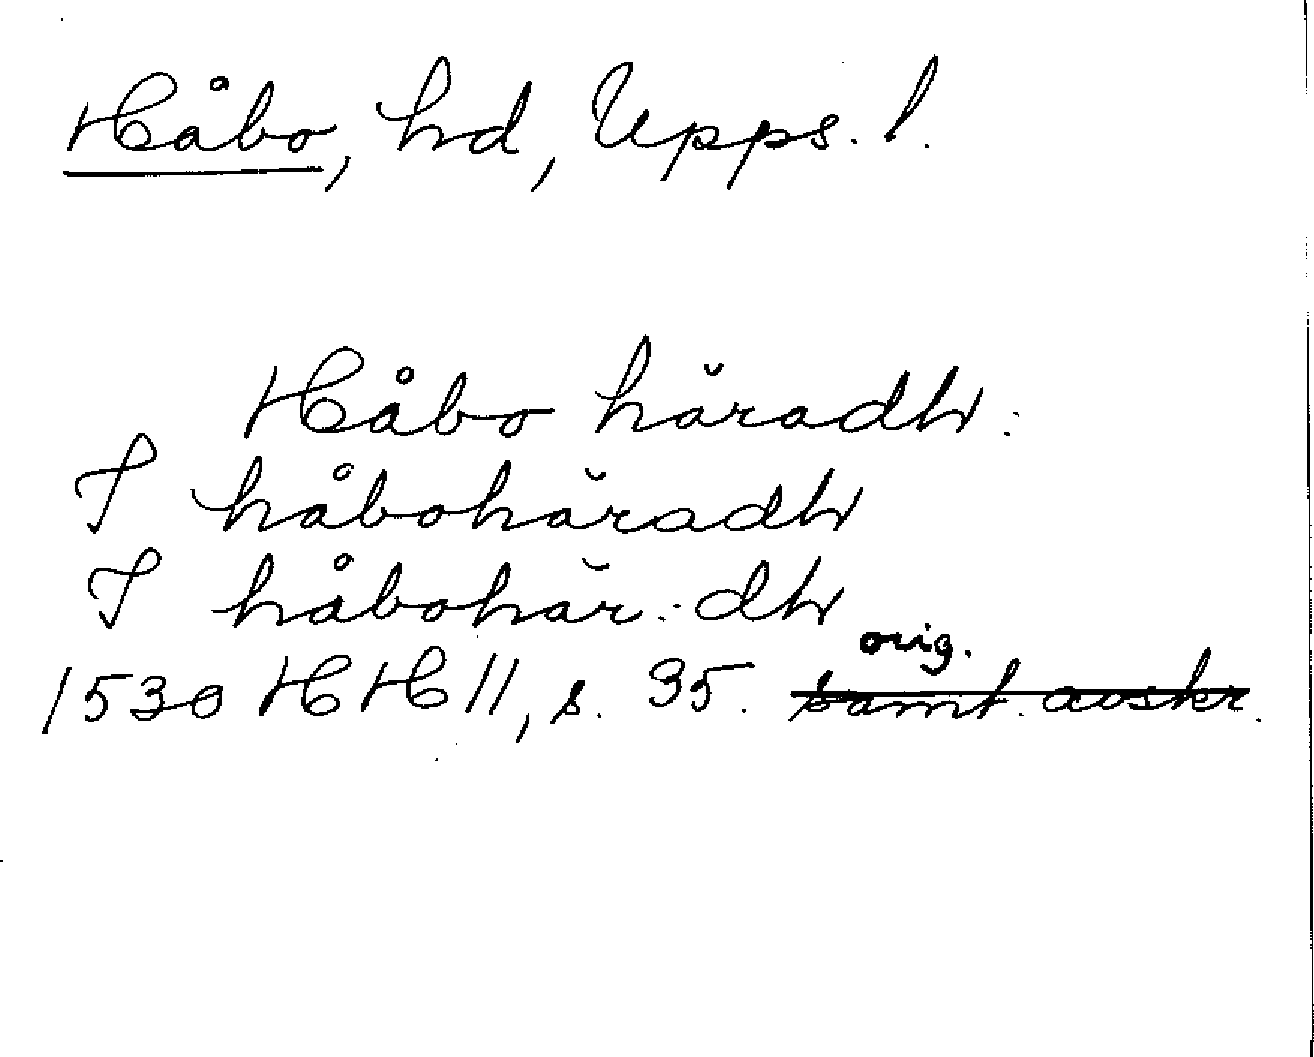 Håbo, hd, Upps. l.
Håbo häradh.
I håbohäradh
I håbohär. dh
orig.
1530 HH 11, s. 35. samt. avskr.